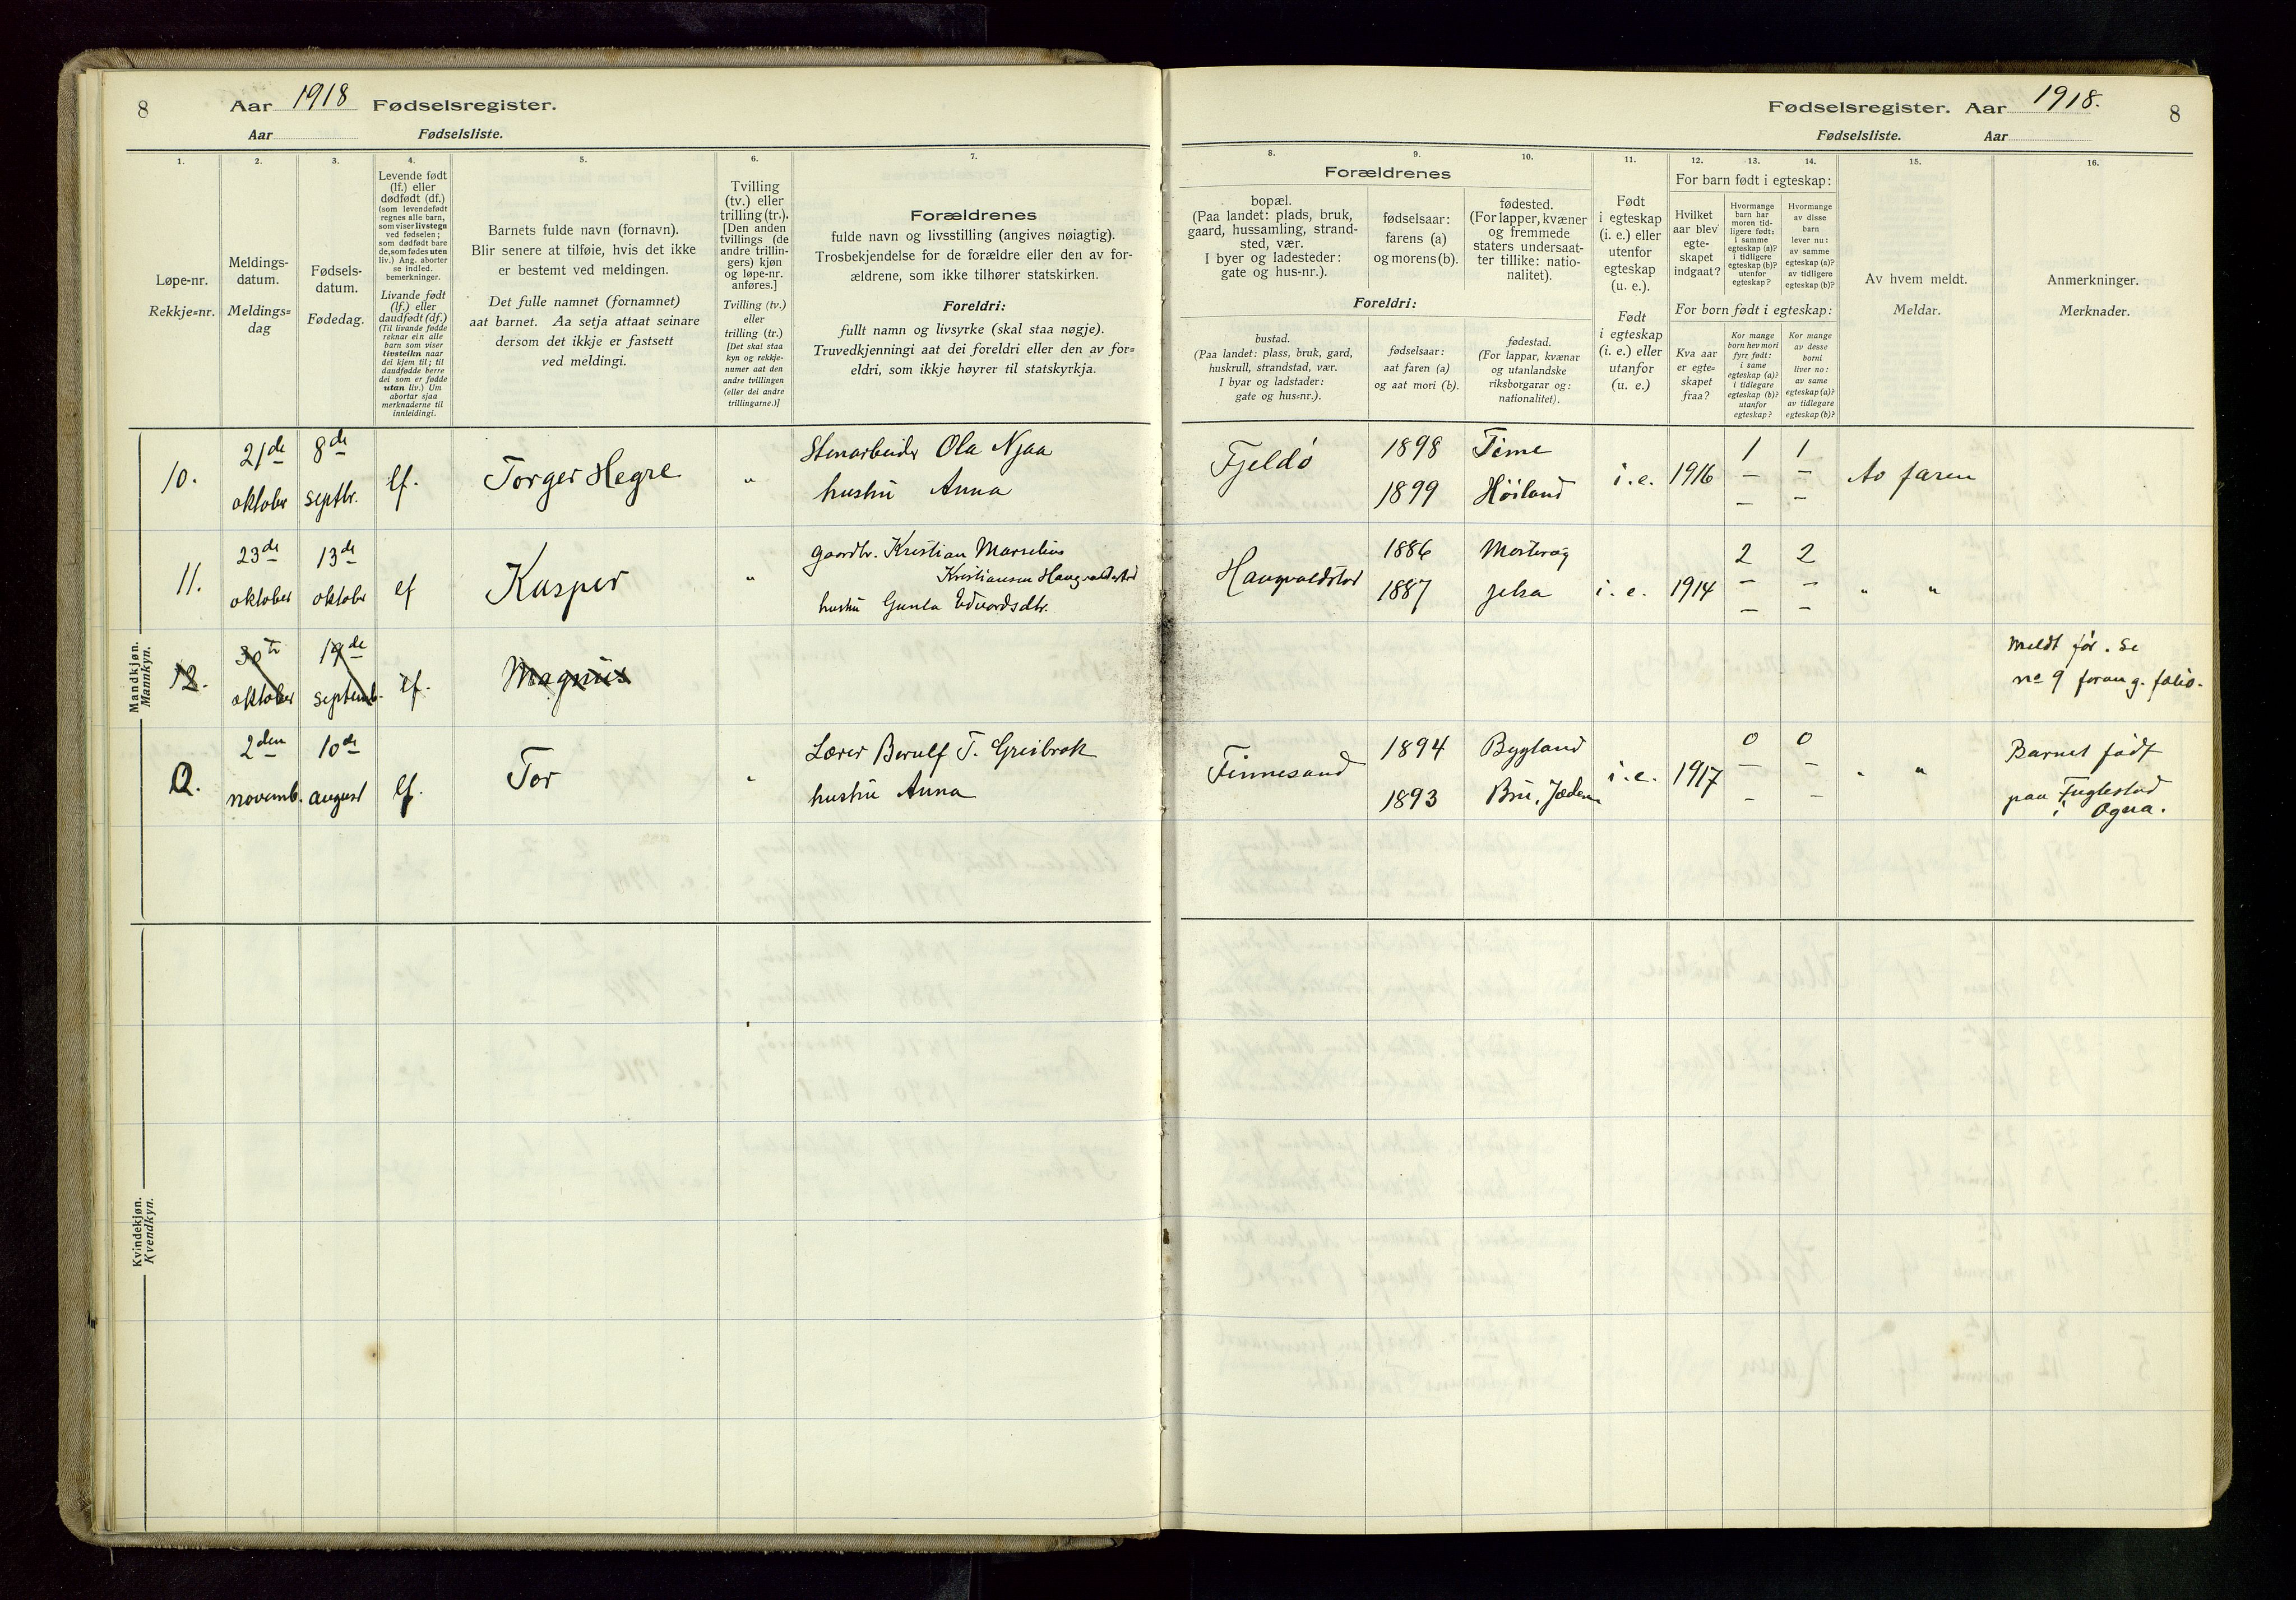 8
Aar 1918 Fødselsregister.
Aar Fødselsliste.
1.
2.
3.
4.
5.
6.
7.
Løpe-nr.
Rekkje=nr.
Meldings-
datum.
Meldings=
dag
Fødsels-
datum.
Fødedag.
Levende født
(lf.) eller
dødfødt (df.)
(som levendefødt
regnes alle barn,
som viser livstegn
ved fødselen;
som dødfødt bare
de, som fødes uten
liv.) Ang. aborter
se indled.
bemerkninger.
Livande født
(lf.) eller
daudfødt (df.)
(Til livande fødde
reknar ein alle
barn som viser
livsteikn naar
dei kjem til; til
daudfødde berre
dei som er fødde
utan liv.) Um
abortar sjaa
merknaderne til
innleidingi.
Barnets fulde navn (fornavn).
Blir senere at tilføie, hvis det ikke
er bestemt ved meldingen.
Det fulle namnet (fornamnet)
aat barnet. Aa setja attaat seinare
dersom det ikkje er fastsett
ved meldingi.
Tvilling
(tv.) eller
trilling (tr.).
[Den anden
tvillings (de
andre trillin-
gers) kjøn
og løpe-nr.
anføres.]
Tvilling (tv.)
eller
trilling (tr.)
[Det skal staa
kyn og rekkje-
numer aat den
andre tvillingen
(eller dei andre
trillingarne.)]
Forældrenes
fulde navn og livsstilling (angives nøiagtig).
Trosbekjendelse for de forældre eller den av for-
ældrene, som ikke tilhører statskirken.
Foreldri:
fullt namn og livsyrke (skal staa nøgje).
Truvedkjenningi aat dei foreldri eller den av for=
eldri, som ikkje høyrer til statskyrkja.
Mandkjøn.
Mannkyn.
10.
21de
oktober
8de
septbr.
lf.
Torger Hegre
"
Stenarbeider Ola Njaa
hustru Anna
11.
23de
oktober
13de
oktober
lf
Kasper
"
gaardbr. Kristian Marselius
Kristiansen Haugvaldstad
hustru Gunla Edvardsdtr.
12.
30te
oktober
19de
septemb.
lf.
Magnus
2den
novemb.
10de
august
lf.
Tor
"
Lærer Berulf T. Greibrok
hustru Anna
Kvindekjøn.
Kvendkyn.
Fødselsregister. Aar 1918.
8
Fødselsliste. Aar
8.
9.
10.
11.
12.
13.
14.
15.
16.
Forældrenes
bopæl.
(Paa landet: plads, bruk,
gaard, hussamling, strand-
sted, vær.
I byer og ladesteder:
gate og hus-nr.).
fødselsaar:
farens (a)
og morens (b).
fødested.
(For lapper, kvæner
og fremmede
staters undersaat-
ter tillike: natio-
nalitet).
Foreldri:
bustad.
(Paa landet: plass, bruk, gard,
huskrull, strandstad, vær.
I byar og ladstader:
gate og hus=nr.).
fødselsaar:
aat faren (a)
og aat mori (b).
fødestad.
(For lappar, kvænar
og utanlandske
riksborgarar og:
nationalitet).
Født
i egteskap
(i. e.) eller
utenfor
egteskap
(u. e.).
Født
i egteskap
(i. e.) eller
utanfor
(u. e.)
For barn født i egteskap:
Hvilket
aar blev
egte-
skapet
indgaat?
Hvormange
barn har
moren tid-
ligere født:
i samme
egteskap (a)?
i tidligere
egteskap (b)?
utenfor
egteskap?
Hvormange
av disse
barn
lever nu:
av samme
egteskap (a)?
av tidligere
egteskap (b)?
For born født i egteskap:
Kva aar
er egte=
skapet
fraa?
Kor mange
born hev mori
fyrr født:
i same
egteskap (a)?
i tidlegare
egteskap (b)?
utanfor
egteskap?
Kor mange
av desse
borni
liver no:
av same
egteskap (a)?
av tidlegare
egteskap (b)?
Av hvem meldt.
Meldar.
Anmerkninger.
Merknader.
Fjeldø
1898
1899
Time
Høiland
i. e.
1916
1
–
–
1
–
–
Av faren
Haugvaldstad
1886
1887
Mosterøy
Jelsa
i. e.
1914
2
–
–
2
–
–
" "
Meldt før. Se
no 9 foran g. folio.
Finnesand
1894
1893
Bygland
Bru, Jæderen
i. e.
1917
0
–
–
0
–
–
" "
Barnet født
paa Fuglestad
i Ogna.